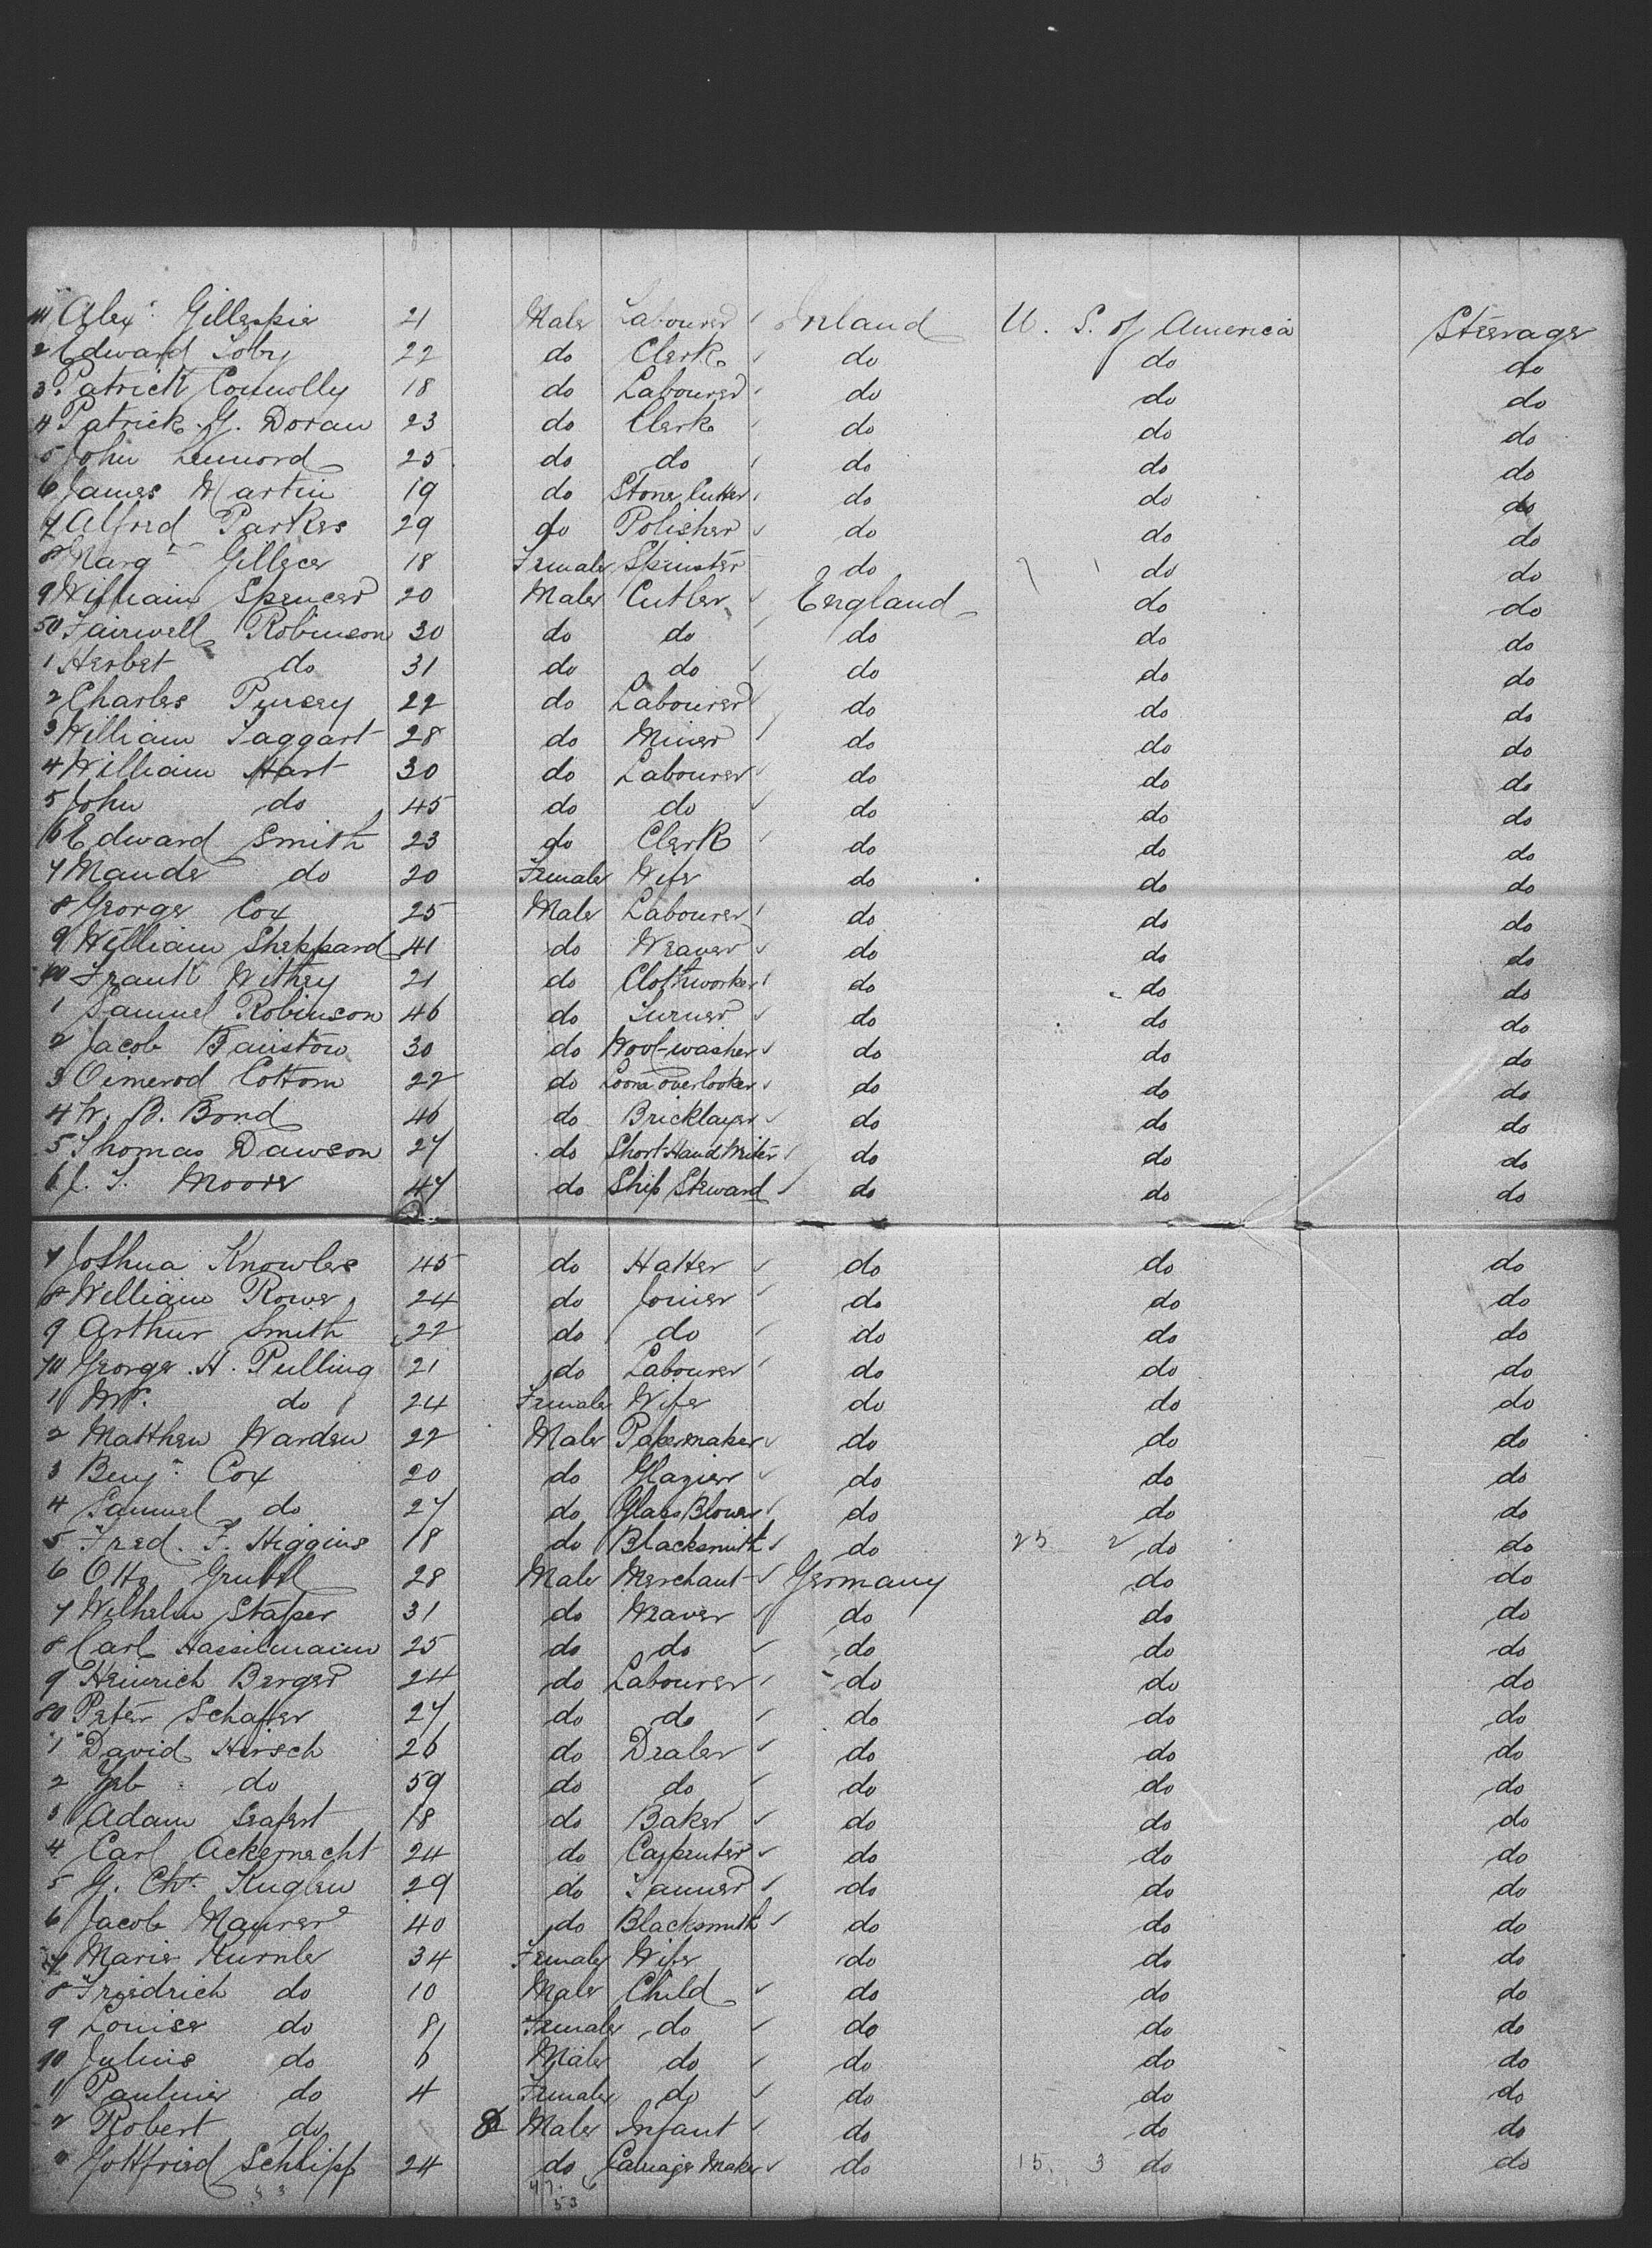 41 Alexr. Gillespie 21 Male Labourer Ireland U. S. of America Steerage
2 Edward Toby 22 do Clerk do do do
3 Patrick Connolly 18 do Labourer do do do
4 Patrick. G. Doran 23 do Clerk do do do
5 John Lennord 25 do do do do do
6 James Martin 19 do Stone Cutter do do do
7 Alfred Parkes 29 do Polisher do do do
8 Margt. 18 Female Spinster do 7 1 do do
9 William Spencer 20 Male Cutler England do do
50 Fairwell Robinson 30 do do do do do
1 Herbet do 31 do do do do do
2 Charles Pursey 22 do Labourer do do do
3 William Taggart 28 do Miner do do do
4 William Hart 30 do Labourer do do do
5 John do 45 do do do do do
6 Edward Smith 23 do Clerk do do do
7 Maude do 20 Female Wife do do do
8 George Cox 25 Male Labourer do do do
9 William Sheppard 41 do Weaver do do do
60 Frank Withey 21 do Clothworker do do do
1 Samuel Robinson 46 do Turner do do do
2 Jacob 30 do Wool-washer do do do
3 Oimerod Cottom 22 do Loom overlooker do do do
4 W. B. Bond 46 do Bricklayer do do do
5 Thomas Dawson 27 do Short Hand Writer do do do
6 J. T. Moore 47 do Ship Steward do do do
7 Joshua Knowles 45 do Hatter do do do
8 William Rowe 24 do Joiner do do do
9 Arthur Smith 22 do do do do do
70 George. H. Pulling 21 do Labourer do do do
1 Mrs. do 24 Female Wife do do do
2 Matthew Warden 22 Male Papermaker do do do
3 Benjn. Cox 20 do Glazier do do do
4 Samuel do 27 do Glass Blower do do do
5 Fred. F. Higgins 18 do Blacksmith do 25 2 do do
6 Otto 28 Male Merchant Germany do do
7 Wilhelm Stafser 31 do Weaver do do do
8 Carl Hassilmann 25 do do do do do
9 Heinrich Berger 24 do Labourer do do do
80 Peter Schafer 27 do do do do do
1 David Hirsch 26 do Dealer do do do
2 do 59 do do do do do
3 Adam Seafert 18 do Baker do do do
4 Carl Ackernecht 24 do Carpenter do do do
5 G. Chr. Kuglen 29 do Tanner do do do
6 Jacob Maurer 40 do Blacksmith do do do
7 Marie Hurnle 34 Female Wife do do do
8 Friedrich do 10 Male Child do do do
9 Louise do 8 Female do do do do
90 Julius do 6 Male do do do do
1 Pauline do 4 Female do do do do
2 Robert do 8 Male Infant do do do
3 Gottfried Schlipf 24 do Carriage Maker do 15. 3 do do
47. 6
53